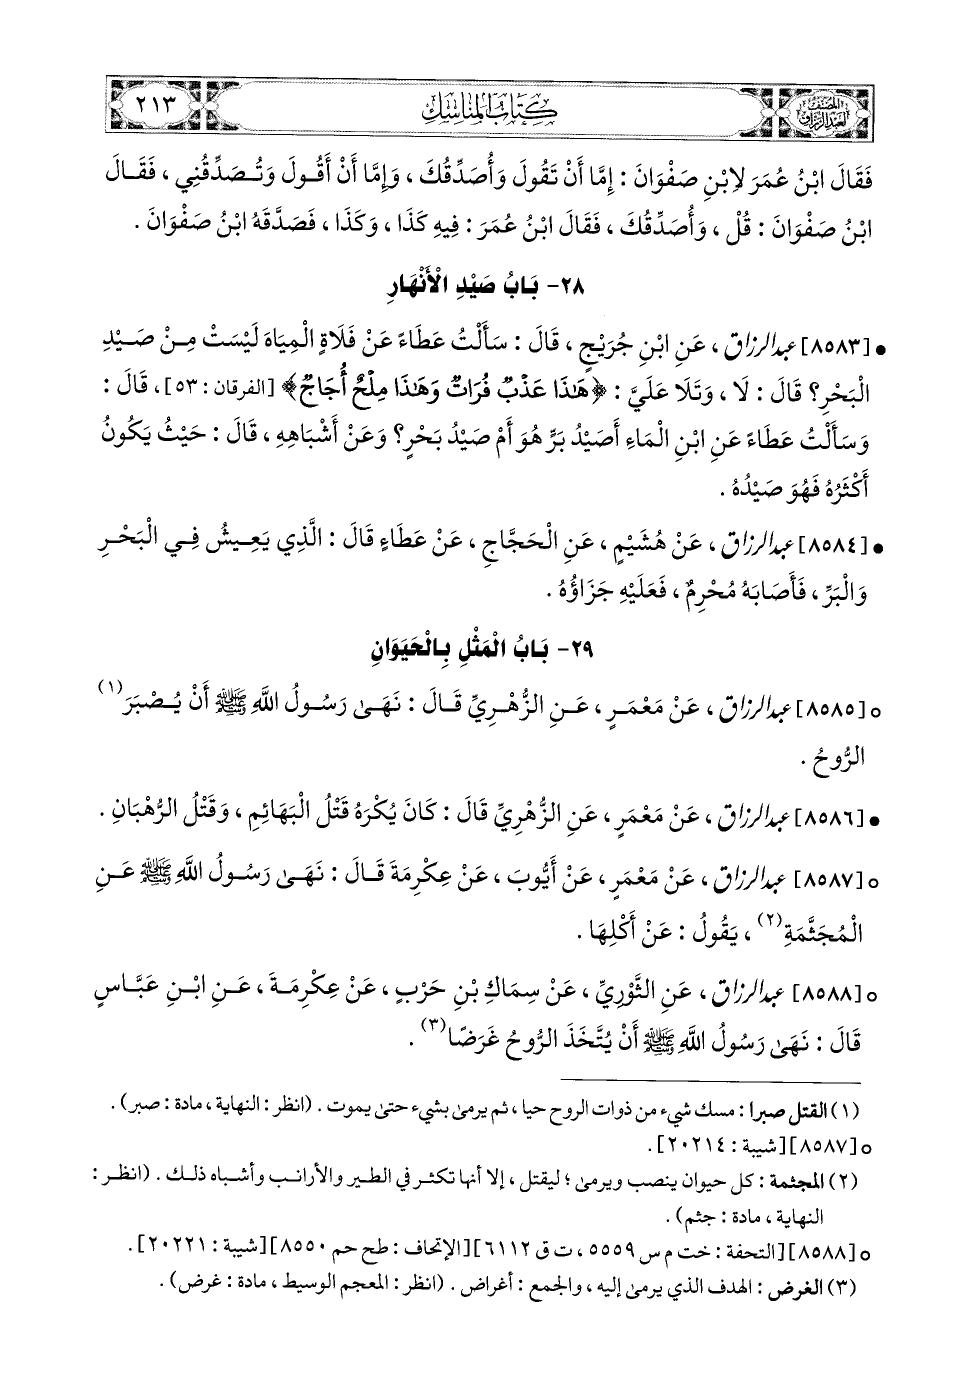 المصنف لعبد الرزاق
كتاب المناسك
٢١٣
فَقَالَ ابْنُ عُمَرَ لِابْنِ صَفْوَانَ : إِمَّا أَنْ تَقُولَ وَأُصَدِّقُكَ ، وَإِمَّا أَنْ أَقُولَ وَتُصَدِّقُنِي ، فَقَالَ
ابْنُ صَفْوَانَ : قُلْ ، وَأُصَدِّقُكَ ، فَقَالَ ابْنُ عُمَرَ : فِيهِ كَذَا ، وَكَذَا ، فَصَدَّقَهُ ابْنُ صَفْوَانَ .
٢٨- بَابُ صَيْدِ الْأَنْهَارِ
• [٨٥٨٣] عبد الرزاق ، عَنِ ابْنِ جُرَيْجٍ ، قَالَ : سَأَلْتُ عَطَاءً عَنْ فَلَاةِ الْمِيَاهَ لَيْسَتْ مِنْ صَيْدِ
الْبَحْرِ؟ قَالَ : لَا ، وَتَلَا عَلَيَّ : ﴿هَٰذَا عَذْبٌ فُرَاتٌ وَهَٰذَا مِلْحٌ أُجَاجٌ﴾ [الفرقان : ٥٣] ، قَالَ :
وَسَأَلْتُ عَطَاءً عَنِ ابْنِ الْمَاءِ أَصَيْدُ بَرٍّ هُوَ أَمْ صَيْدُ بَحْرٍ؟ وَعَنْ أَشْبَاهِهِ ، قَالَ : حَيْثُ يَكُونُ
أَكْثَرُهُ فَهُوَ صَيْدُهُ .
• [٨٥٨٤] عبد الرزاق ، عَنْ هُشَيْمٍ ، عَنِ الْحَجَّاجِ ، عَنْ عَطَاءٍ قَالَ : الَّذِي يَعِيشُ فِي الْبَحْرِ
وَالْبَرِّ ، فَأَصَابَهُ مُحْرِمٌ ، فَعَلَيْهِ جَزَاؤُهُ .
٢٩- بَابُ الْمَثْلِ بِالْحَيَوَانِ
○ [٨٥٨٥] عبد الرزاق ، عَنْ مَعْمَرٍ ، عَنِ الزُّهْرِيِّ قَالَ : نَهَى رَسُولُ اللَّهِ ﷺ أَنْ يُصْبَرَ(١)
الرُّوحُ .
• [٨٥٨٦] عبد الرزاق ، عَنْ مَعْمَرٍ ، عَنِ الزُّهْرِيِّ قَالَ : كَانَ يُكْرَهُ قَتْلُ الْبَهَائِمِ ، وَقَتْلُ الرُّهْبَانِ .
○ [٨٥٨٧] عبد الرزاق ، عَنْ مَعْمَرٍ ، عَنْ أَيُّوبَ ، عَنْ عِكْرِمَةَ قَالَ : نَهَى رَسُولُ اللَّهِ ﷺ عَنِ
الْمُجَثَّمَةِ(٢) ، يَقُولُ : عَنْ أَكْلِهَا .
○ [٨٥٨٨] عبد الرزاق ، عَنِ الثَّوْرِيِّ ، عَنْ سِمَاكِ بْنِ حَرْبٍ ، عَنْ عِكْرِمَةَ ، عَنِ ابْنِ عَبَّاسٍ
قَالَ : نَهَى رَسُولُ اللَّهِ ﷺ أَنْ يُتَّخَذَ الرُّوحُ غَرَضًا(٣) .
(١) القتل صبرا : مسك شيء من ذوات الروح حيا ، ثم يرمى بشيء حتى يموت . (انظر : النهاية ، مادة : صبر) .
○ [٨٥٨٧] [شيبة : ٢٠٢١٤] .
(٢) المجثمة : كل حيوان ينصب ويرمى ؛ ليقتل ، إلا أنها تكثر في الطير والأرانب وأشباه ذلك . (انظر :
النهاية ، مادة : جثم) .
○ [٨٥٨٨] [التحفة : خت م س ٥٥٥٩ ، ت ق ٦١١٢] [الإتحاف : طح حم ٨٥٥٠] [شيبة : ٢٠٢٢١] .
(٣) الغرض : الهدف الذي يرمى إليه ، والجمع : أغراض . (انظر : المعجم الوسيط ، مادة : غرض) .